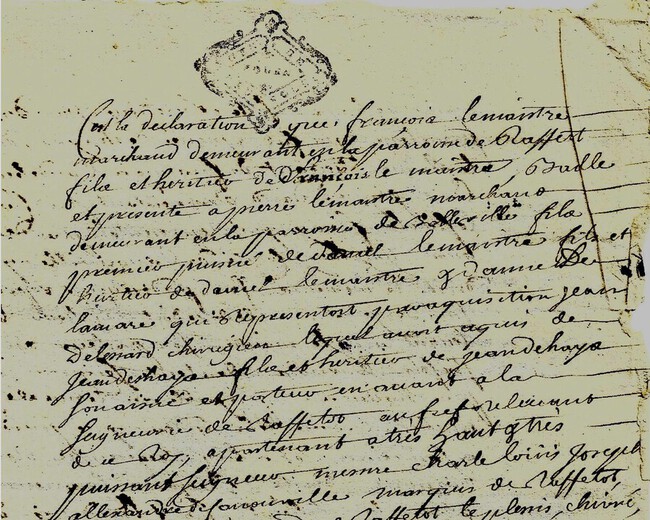 Cest la declaration que francois lemaistre
marchand demeurant en la parroisse de Raffetot
filx et heritier de francois le maistre Baille
et presente a pierre lemaistre marchand
demeurant en la parroisse de Bolleville filx
premier puisné de daniel lemaistre filx et
heritier de daniel lemaistre & danne De
lamare qui Representoit par aquisition jean
Delessard chirugien lequel avoit aquis de
jean deshaye filx et heritier de jean dehaye
et porteur en avant a la
Seigneurie de Raffetot au fief relevant
de ce Roy, appartenant a tres haut & tres
puissant seigneur messire Charle louis Joseph
allexandre de Canouville marquis de Raffetot
de Raffetot le plenis, chivré,